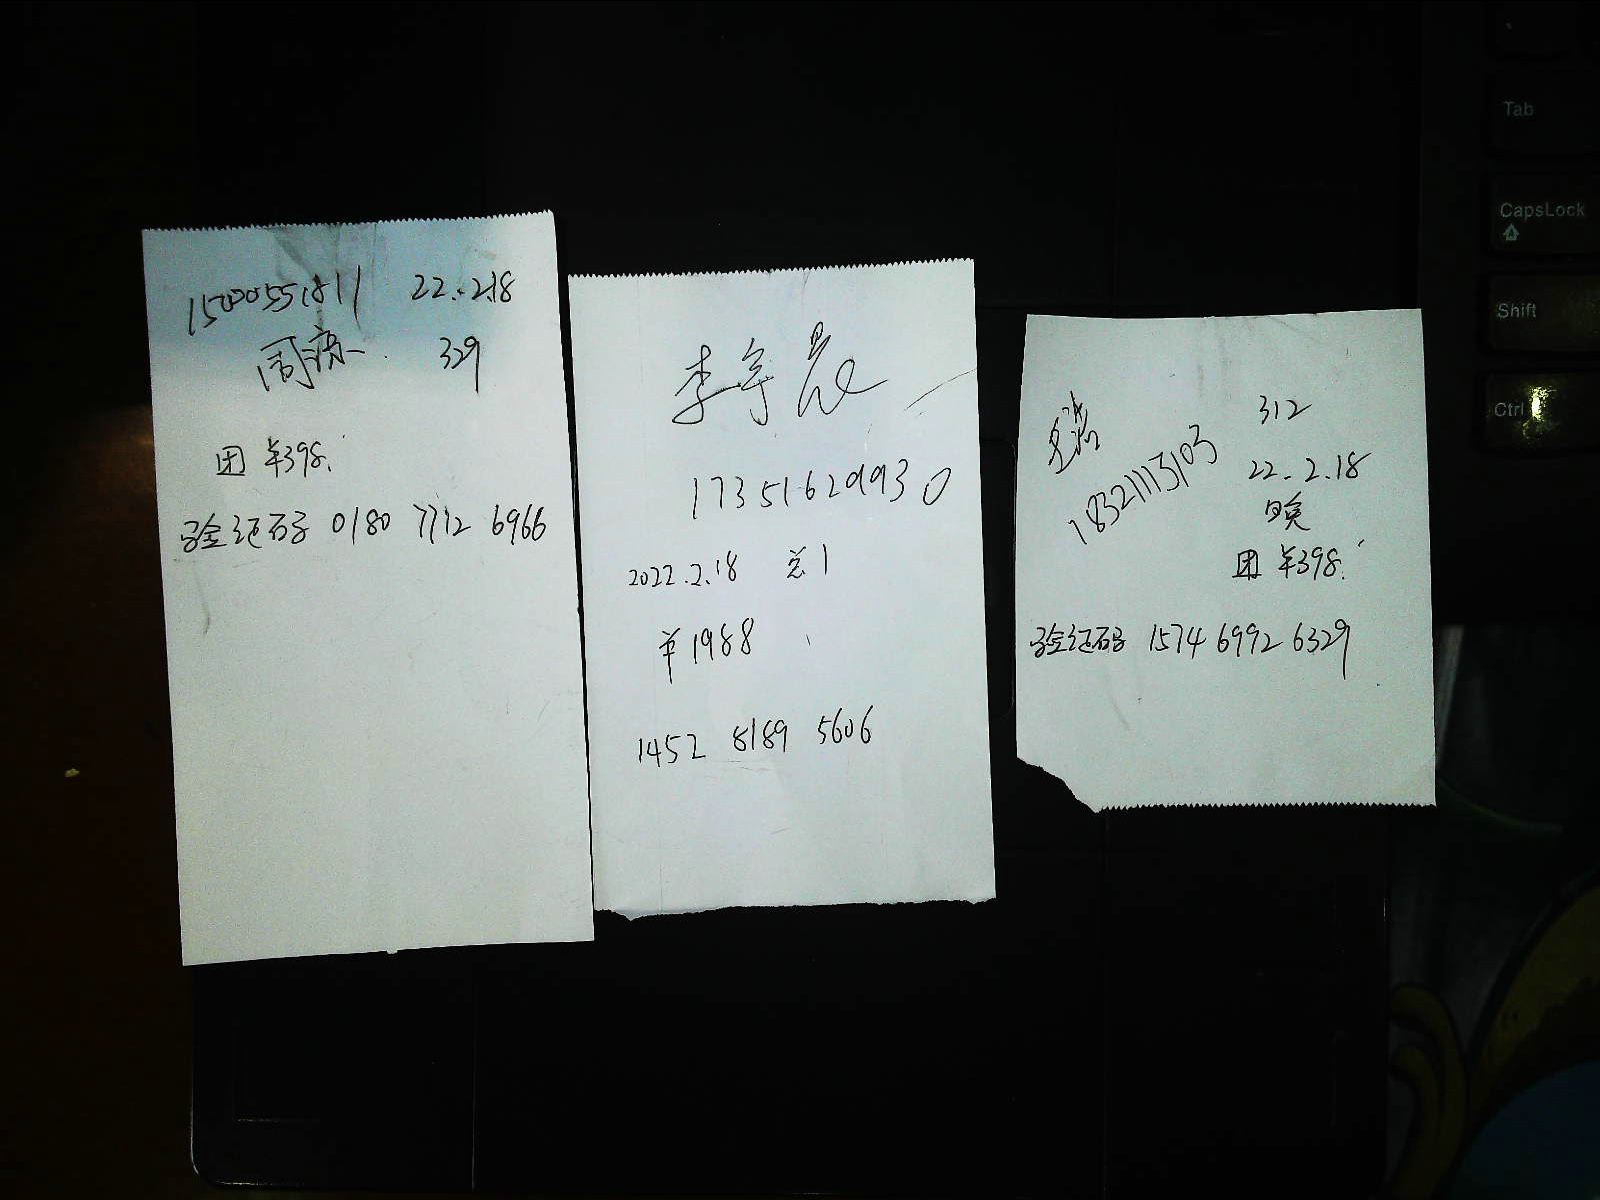 15000551811 22.2.18
周 329
团 ¥398.
验证码 0180 7712 6966
李宇晨
17351629930
2022.2.18 总1
¥1988
1452 8189 5606
312
18321113103
22.2.18
晚
团 ¥398.
验证码 1574 6992 6329
Tab
CapsLock
Shift
Ctrl